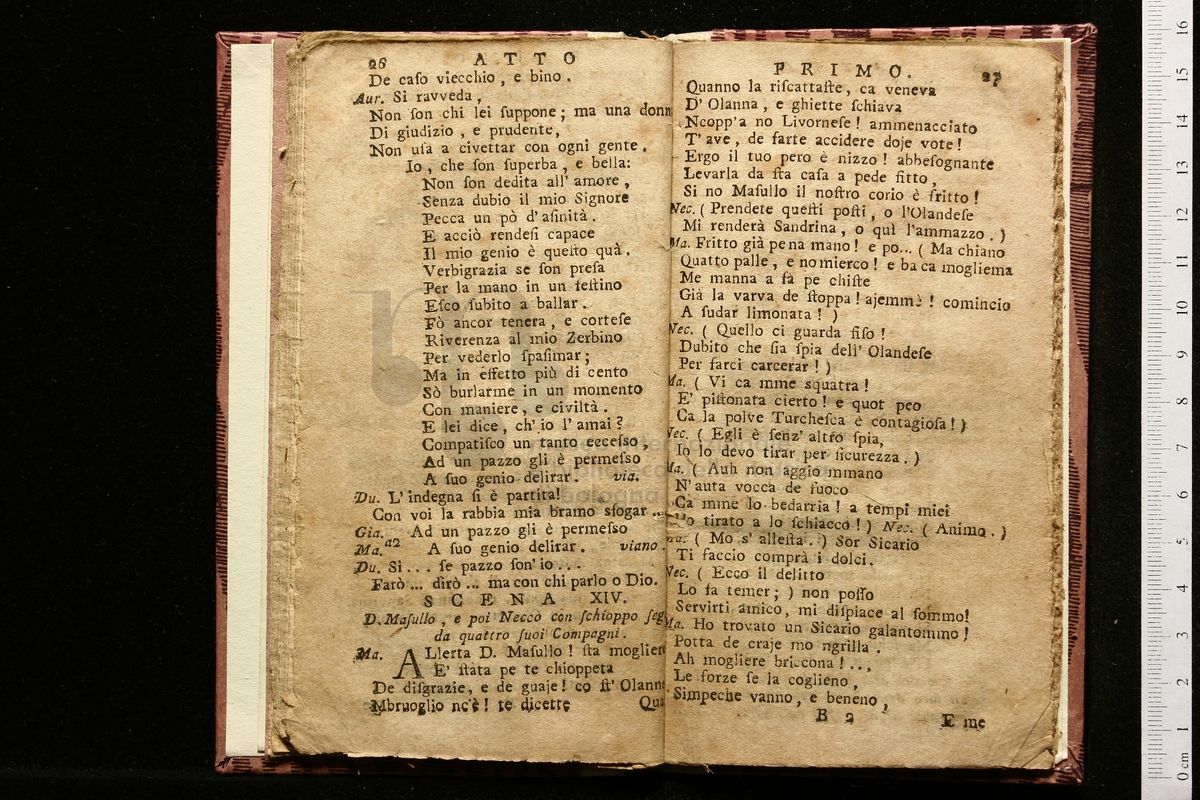 26 ATTO
De caſo viecchio, e bino.
Aur. Si ravveda,
Non ſon chi lei ſuppone; ma una donn
Di giudizio, e prudente,
Non uſa a civettar con ogni gente.
Io, che ſon ſuperba, e bella:
Non ſon dedita all' amore,
Senza dubio il mio Signore
Pecca un pò d' aſinità.
E acciò rendeſi capace
Il mio genio è queſto quà.
Verbigrazia se ſon preſa
Per la mano in un feſtino
Eſco ſubito a ballar.
Fò ancor tenera, e corteſe
Riverenza al mio Zerbino
Per vederlo ſpaſimar;
Ma in effetto più di cento
Sò burlarme in un momento
Con maniere, e civiltà.
E lei dice, ch' io l' amai?
Compatiſco un tanto ecceſſo,
Ad un pazzo gli è permeſſo
A ſuo genio delirar. via.
Du. L' indegna ſi è partita!
Con voi la rabbia mia bramo sfogar ...
Gia. Ad un pazzo gli è permeſſo
Ma. a2 A ſuo genio delirar. viano.
Du. Si... ſe pazzo ſon' io...
Farò... dirò... ma con chi parlo o Dio.
SCENA XIV.
D. Maſullo, e poi Necco con ſchioppo ſeg
da quattro ſuoi Compagni.
Ma. ALlerta D. Maſullo! ſta moglier
E' ſtata pe te chioppeta
De diſgrazie, e de guaje! co ſt' Olann
Mbruoglio nc'è! te dicette
Qua
PRIMO. 27
Quanno la riſcattaſte, ca veneva
D' Olanna, e ghiette ſchiava
Ncopp'a no Livorneſe! ammenacciato
T' ave, de farte accidere doje vote!
Ergo il tuo pero è nizzo! abbeſognante
Levarla da ſta caſa a pede fitto,
Si no Maſullo il noſtro corio è fritto!
Nec. (Prendete queſti poſti, o l'Olandeſe
Mi renderà Sandrina, o quì l'ammazzo.)
Ma. Fritto già pe na mano! e po... (Ma chiano
Quatto palle, e no mierco! e ba ca mogliema
Me manna a fà pe chiſte
Già la varva de ſtoppa! ajemmè! comincio
A ſudar limonata!)
Nec. (Quello ci guarda fiſo!
Dubito che ſia ſpia dell' Olandeſe
Per farci carcerar!)
Ma. (Vi ca mme squatra!
E' piſtonata cierto! e quot peo
Ca la polve Turcheſca è contagioſa!)
Nec. (Egli è ſenz' altro ſpia,
Io lo devo tirar per ſicurezza.)
Ma. (Auh non aggio mmano
N' auta vocca de fuoco
Ca mme lo bedarria! a tempi miei
tirato a lo ſchiacco!) Nec. (Animo.)
Ma. (Mo s' alleſta.) Sor Sicario
Ti faccio comprà i dolci.
Nec. (Ecco il delitto
Lo fa temer;) non poſſo
Servirti amico, mi diſpiace al ſommo!
Ma. Ho trovato un Sicario galantommo!
Potta de craje mo ngrilla.
Ah mogliere briccona!...
Le forze ſe la coglieno,
Simpeche vanno, e beneno,
B 2 E me